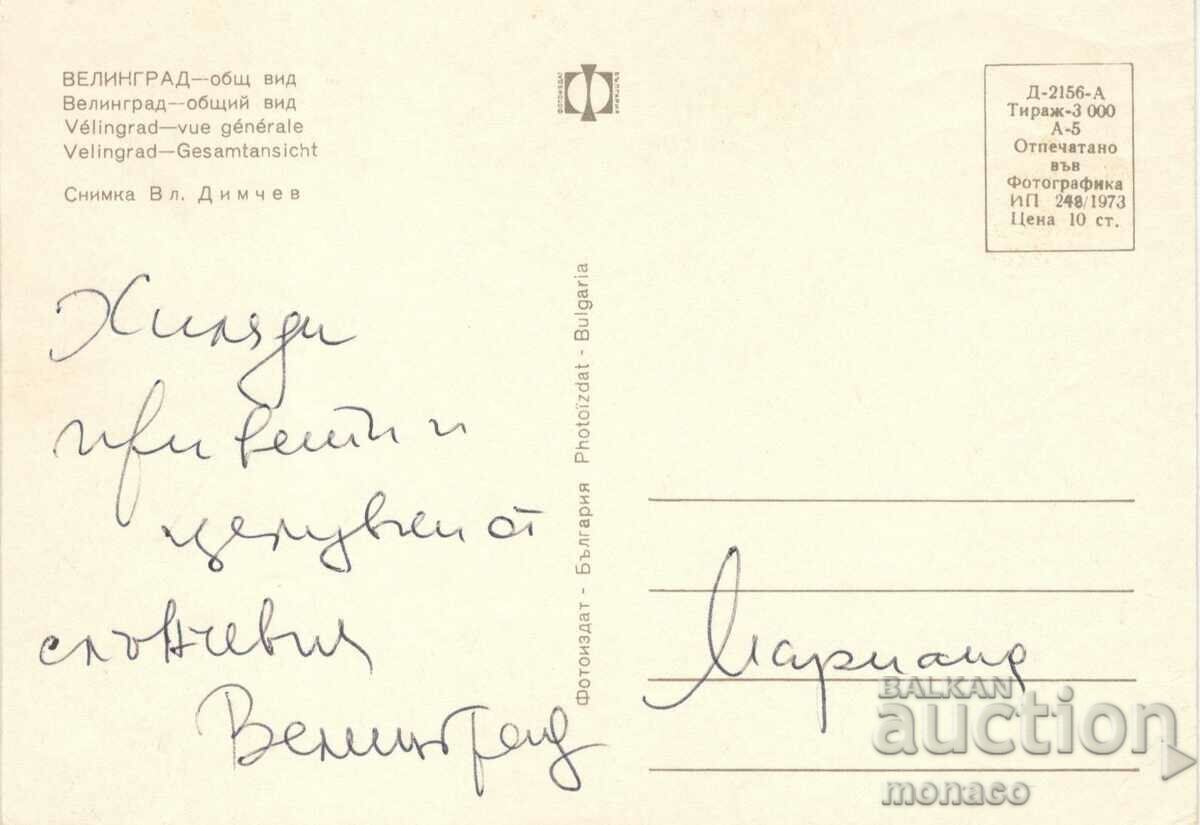 ВЕЛИНГРАД—общ вид
Велинград—общий вид
Vélingrad—vue générale
Velingrad—Gesamtansicht
Снимка Вл. Димчев
ФОТОИЗДАТ
БЪЛГАРИЯ
Д-2156-А
Тираж-3 000
А-5
Отпечатано
във
Фотографика
ИП 248/1973
Цена 10 ст.
Хиляди
привети и
целувки от
слънчевия
Велинград
Фотоиздат - България Photoïzdat - Bulgaria
Мариана
BALKAN
auction
monaco